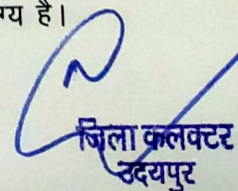 ग्य है।
जिला कलक्टर
उदयपुर